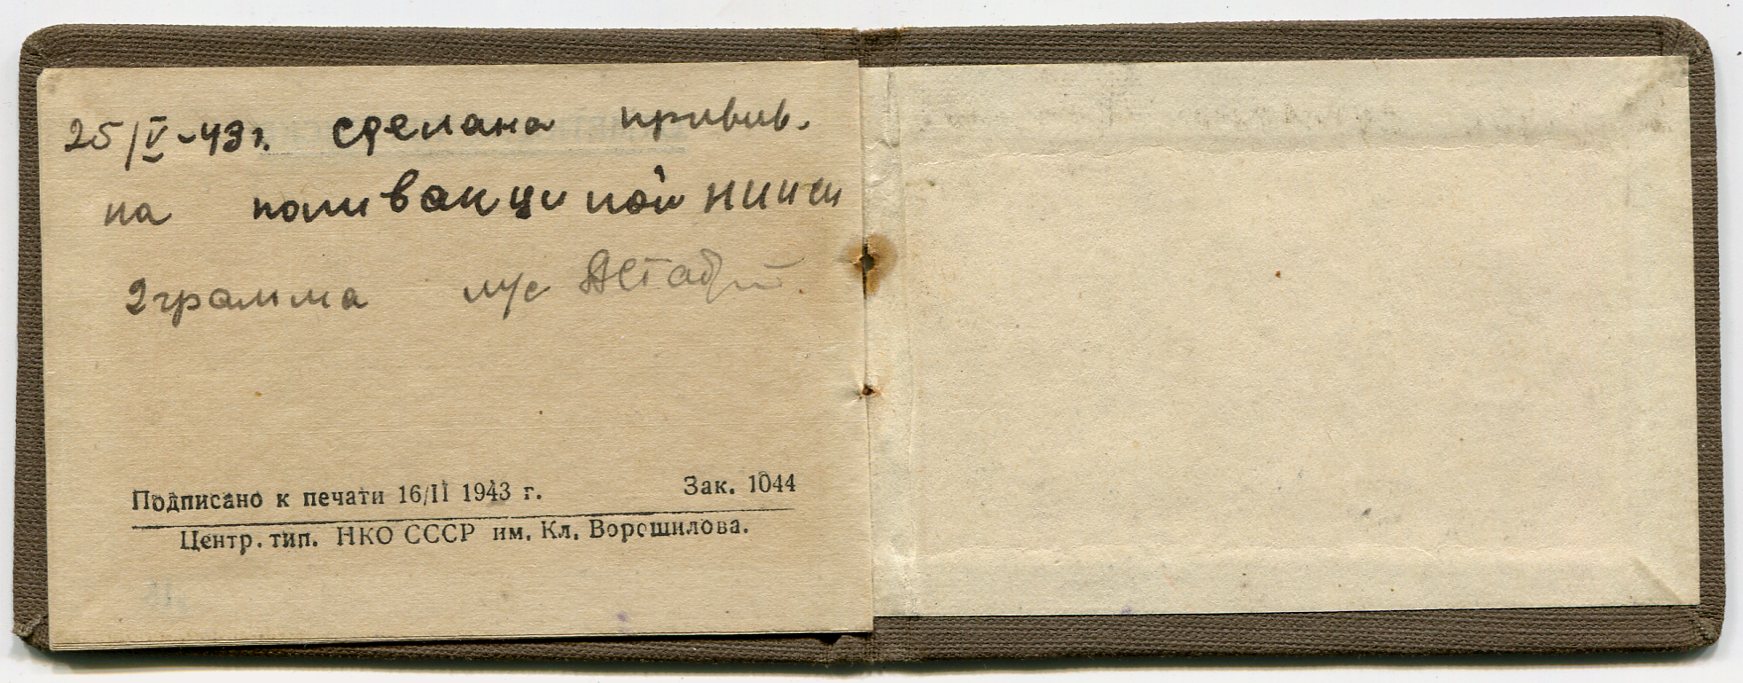 25/V-43г. сделана привив.
на поливакциной НИИСИ
2 грамма м/с
Подписано к печати 16/II 1943 г. Зак. 1044
Центр. тип. НКО СССР им. Кл. Ворошилова.